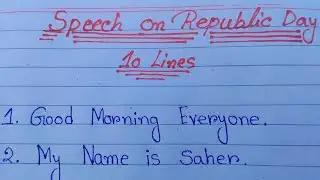 Speech on Republic Day
10 Lines
1. Good Morning Everyone.
2. My Name is Saher.